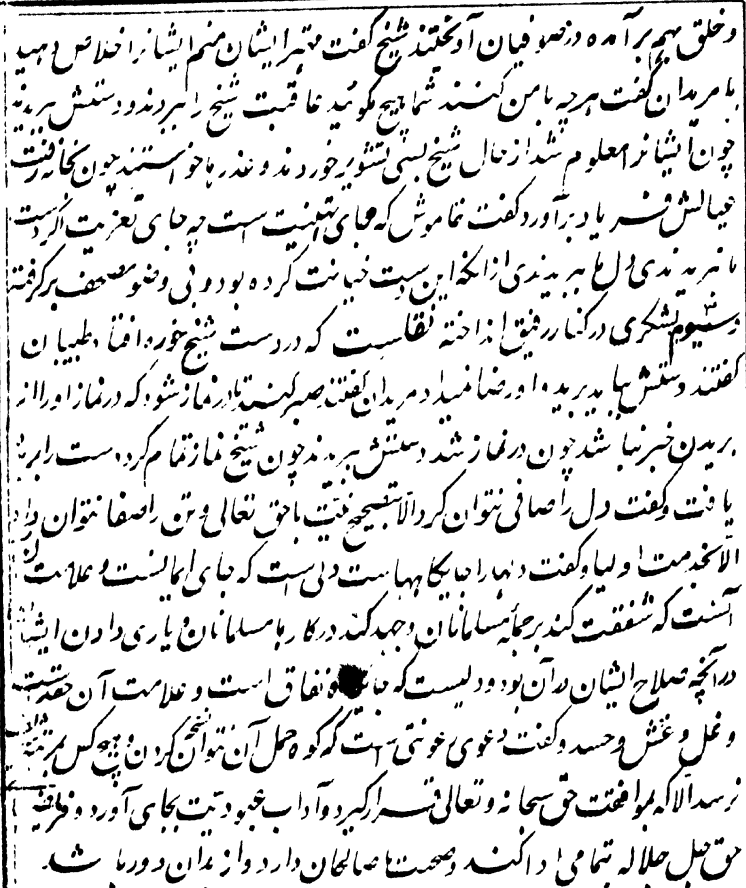 و خلق بهم برآمده در صوفیان آویختند شیخ گفت مهتر ایشان منم ایشانرا خلاص دهید
با مریدان گفت هرچه با من کنند شما هیچ مگوئید عاقبت شیخ را ببردند و دستش ببریدند
چون ایشانرا معلوم شد از حال شیخ بسی تشویر خوردند و عذرها خواستند چون بخانه رفت
عیالش فریاد برآورد گفت خاموش که جای تهنیت است چه جای تعزیت اگر دست
ما نبریدندی دل ما ببریدندی از انکه این دست خیانت کرده بود و بی وضو مصحف برگرفته
و سیوم شکری در کنار رفیق انداخته نقلست که در دست شیخ خوره افتاد طبیبان
گفتند دستش بباید بریدن او رضا نمیداد مریدان گفتند صبر کنید تا در نماز شود که در نماز او را از
بریدن خبر نباشد چون در نماز شد دستش ببریدند چون شیخ نماز تمام کرد دست را بریده
یافت و گفت دل را صافی نتوان کرد الا بتصحیح نیت با حق تعالی و تن را صفا نتوان داد
الا بخدمت اولیا و گفت دلها را جایگاههاست دلی است که جای ایمانست و علامت
آنست که شفقت کند بر جمله مسلمانان و جهد کند در کارها مسلمانان و یاری دادن ایشان
در آنچه صلاح ایشان در آن بود و دلیست که جای نفاق است و علامت آن حقدست
و غل و غش و حسد و گفت دعوی رعونتی است که کوه حمل آن نتوان کردن و هیچ کس بمرتبه
نرسد الا که بموافقت حق سبحانه و تعالی قرار گیرد و آداب عبودیت بجای آورد و فریضه
حق جل جلاله بتمامی ادا کند و صحبت با صالحان دارد و از بدان دور باشد